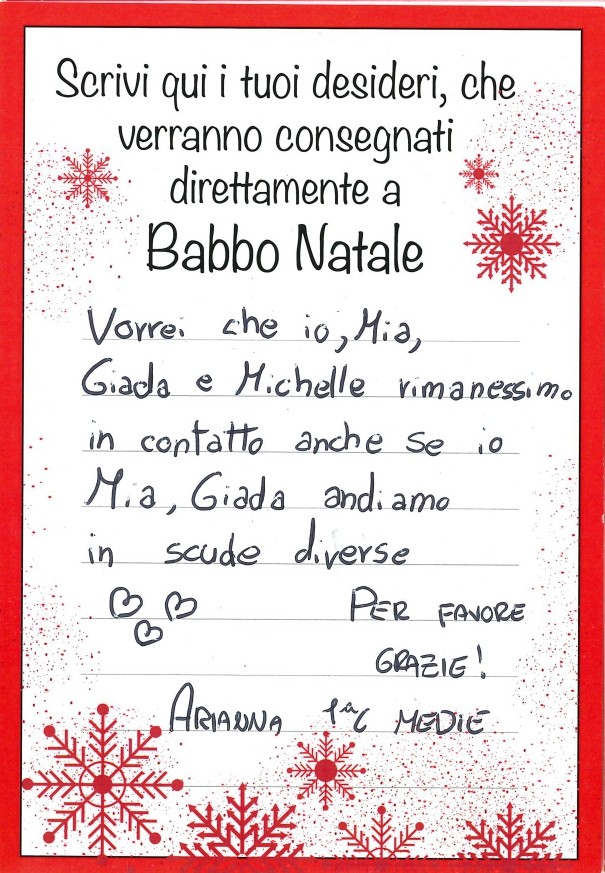 Scrivi qui i tuoi desideri, che
verranno consegnati
direttamente a
Babbo Natale
Vorrei che io, Mia,
Giada e Michelle rimanessimo
in contatto anche se io
Mia, Giada andiamo
in scude diverse
PER FAVORE
GRAZIE!
ARIANNA 1ªC MEDIE